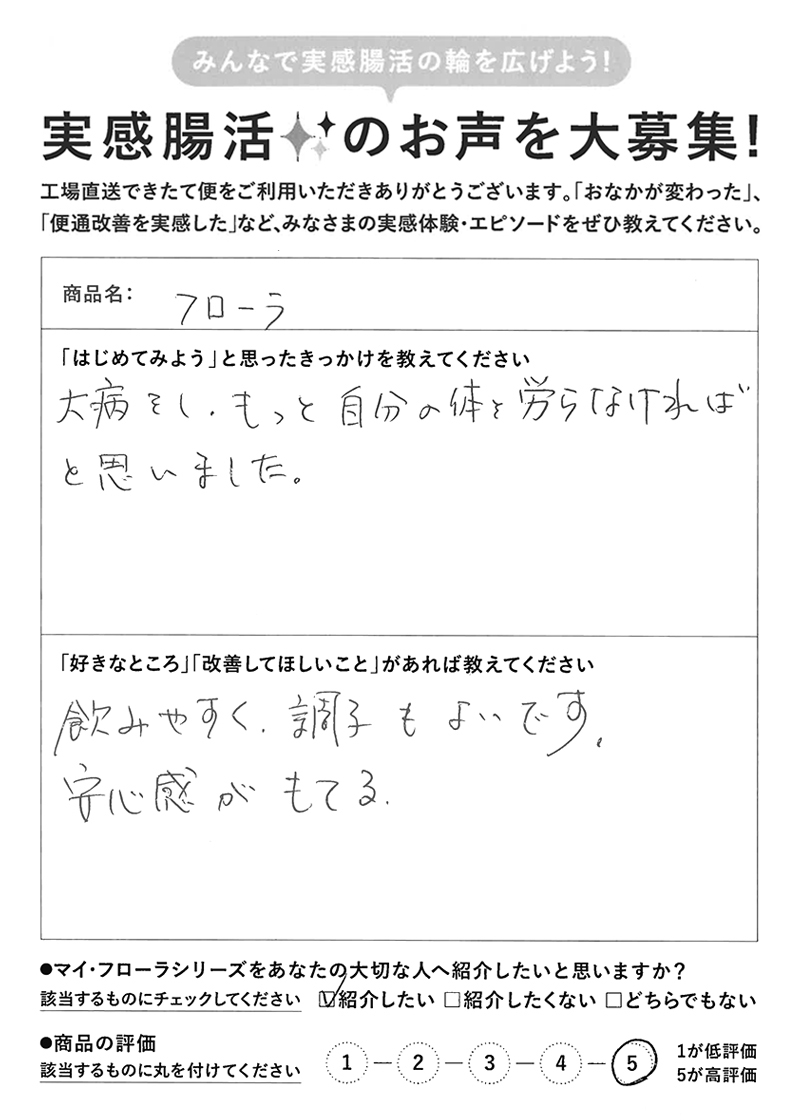 みんなで実感腸活の輪を広げよう!
実感腸活のお声を大募集!
工場直送できたて便をご利用いただきありがとうございます。「おなかが変わった」、
「便通改善を実感した」など、みなさまの実感体験・エピソードをぜひ教えてください。
商品名: フローラ
「はじめてみよう」と思ったきっかけを教えてください
大病をし、もっと自分の体を労らなければ
と思いました。
「好きなところ」「改善してほしいこと」があれば教えてください
飲みやすく、調子もよいです。
安心感がもてる。
●マイ・フローラシリーズをあなたの大切な人へ紹介したいと思いますか?
該当するものにチェックしてください ☑紹介したい □紹介したくない □どちらでもない
●商品の評価
該当するものに丸を付けてください
1 — 2 — 3 — 4 — 5
1が低評価
5が高評価